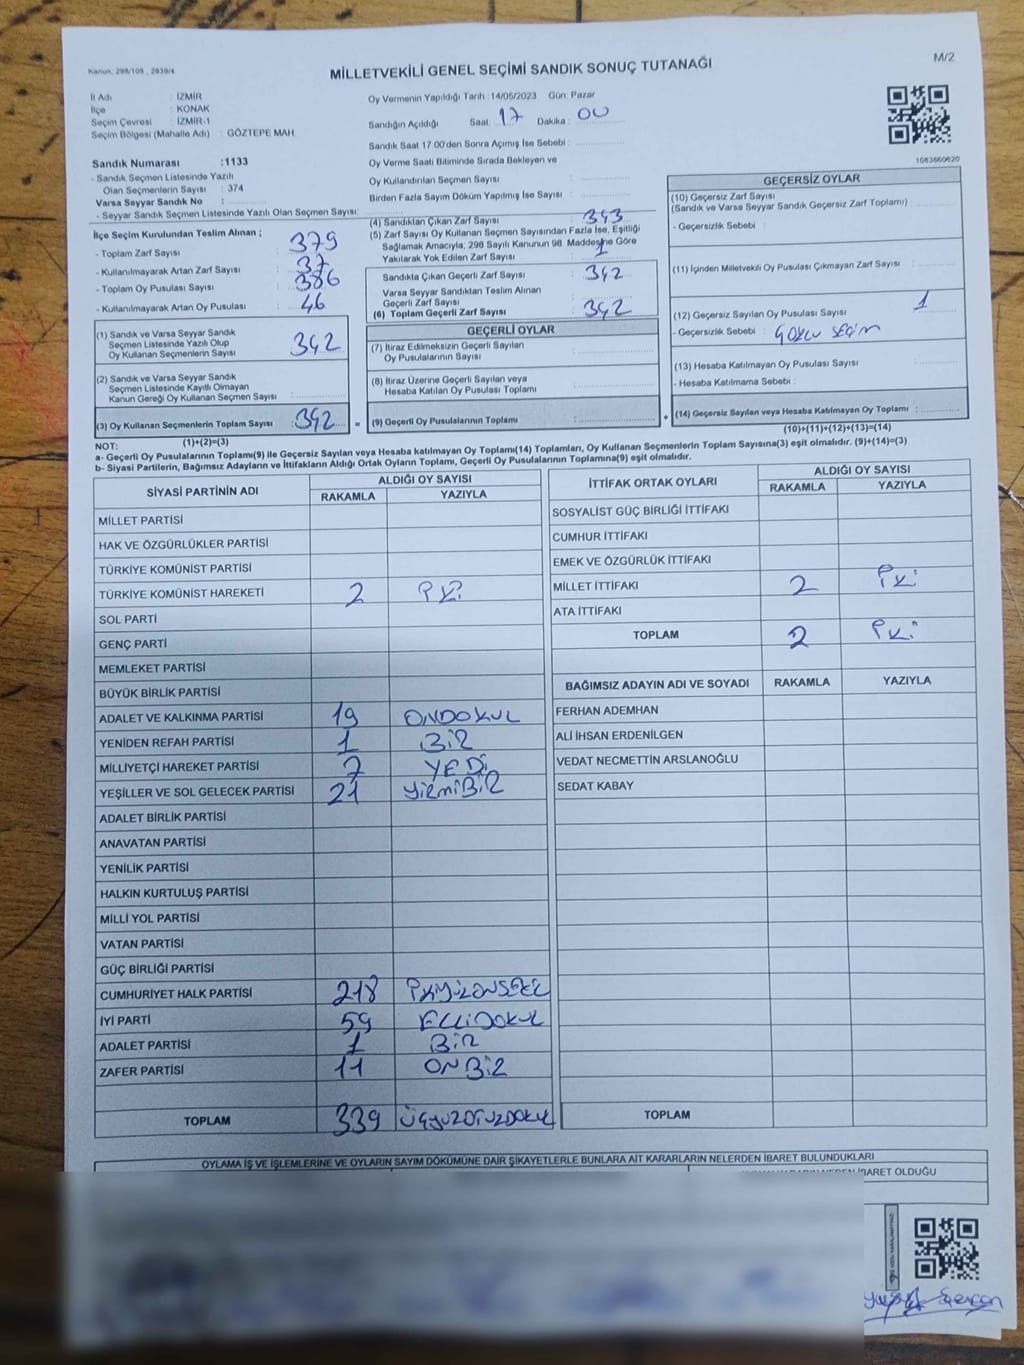 Kanun: 298/105 , 2839/4
MİLLETVEKİLİ GENEL SEÇİMİ SANDIK SONUÇ TUTANAĞI
M/2
İl Adı : İZMİR
İlçe : KONAK
Seçim Çevresi : İZMİR-1
Seçim Bölgesi (Mahalle Adı) : GÖZTEPE MAH.
Sandık Numarası :1133
- Sandık Seçmen Listesinde Yazılı
Olan Seçmenlerin Sayısı : 374
Varsa Seyyar Sandık No :
- Seyyar Sandık Seçmen Listesinde Yazılı Olan Seçmen Sayısı:
İlçe Seçim Kurulundan Teslim Alınan ;
- Toplam Zarf Sayısı : 379
- Kullanılmayarak Artan Zarf Sayısı : 37
- Toplam Oy Pusulası Sayısı : 386
- Kullanılmayarak Artan Oy Pusulası : 46
(1) Sandık ve Varsa Seyyar Sandık
Seçmen Listesinde Yazılı Olup
Oy Kullanan Seçmenlerin Sayısı : 342
(2) Sandık ve Varsa Seyyar Sandık
Seçmen Listesinde Kayıtlı Olmayan
Kanun Gereği Oy Kullanan Seçmen Sayısı :
(3) Oy Kullanan Seçmenlerin Toplam Sayısı : 342
(1)+(2)=(3)
Oy Vermenin Yapıldığı Tarih :14/05/2023 Gün: Pazar
Sandığın Açıldığı Saat: 17 Dakika : 00
Sandık Saat 17.00'den Sonra Açımış İse Sebebi :
Oy Verme Saati Bitiminde Sırada Bekleyen ve
Oy Kullandırılan Seçmen Sayısı :
Birden Fazla Sayım Döküm Yapılmış İse Sayısı :
(4) Sandıktan Çıkan Zarf Sayısı : 343
(5) Zarf Sayısı Oy Kullanan Seçmen Sayısından Fazla İse, Eşitliği
Sağlamak Amacıyla; 298 Sayılı Kanunun 98. Maddesine Göre
Yakılarak Yok Edilen Zarf Sayısı : 1
Sandıkta Çıkan Geçerli Zarf Sayısı : 342
Varsa Seyyar Sandıktan Teslim Alınan
Geçerli Zarf Sayısı :
(6) Toplam Geçerli Zarf Sayısı : 342
GEÇERLİ OYLAR
(7) İtiraz Edilmeksizin Geçerli Sayılan
Oy Pusulalarının Sayısı :
(8) İtiraz Üzerine Geçerli Sayılan veya
Hesaba Katılan Oy Pusulası Toplamı :
= (9) Geçerli Oy Pusulalarının Toplamı :
1083860620
GEÇERSİZ OYLAR
(10) Geçersiz Zarf Sayısı
(Sandık ve Varsa Seyyar Sandık Geçersiz Zarf Toplamı) :
- Geçersizlik Sebebi :
(11) İçinden Milletvekili Oy Pusulası Çıkmayan Zarf Sayısı :
(12) Geçersiz Sayılan Oy Pusulası Sayısı : 1
- Geçersizlik Sebebi :
(13) Hesaba Katılmayan Oy Pusulası Sayısı :
- Hesaba Katılmama Sebebi :
+ (14) Geçersiz Sayılan veya Hesaba Katılmayan Oy Toplamı :
(10)+(11)+(12)+(13)=(14)
NOT:
a- Geçerli Oy Pusulalarının Toplamı(9) ile Geçersiz Sayılan veya Hesaba katılmayan Oy Toplamı(14) Toplamları, Oy Kullanan Seçmenlerin Toplam Sayısına(3) eşit olmalıdır. (9)+(14)=(3)
b- Siyasi Partilerin, Bağımsız Adayların ve İttifakların Aldığı Ortak Oyların Toplamı, Geçerli Oy Pusulalarının Toplamına(9) eşit olmalıdır.
SİYASİ PARTİNİN ADI ALDIĞI OY SAYISI
RAKAMLA YAZIYLA
MİLLET PARTİSİ
HAK VE ÖZGÜRLÜKLER PARTİSİ
TÜRKİYE KOMÜNİST PARTİSİ
TÜRKİYE KOMÜNİST HAREKETİ 2 İKİ
SOL PARTİ
GENÇ PARTİ
MEMLEKET PARTİSİ
BÜYÜK BİRLİK PARTİSİ
ADALET VE KALKINMA PARTİSİ 19 ONDOKUZ
YENİDEN REFAH PARTİSİ 1 BİR
MİLLİYETÇİ HAREKET PARTİSİ 7 YEDİ
YEŞİLLER VE SOL GELECEK PARTİSİ 21 YİRMİBİR
ADALET BİRLİK PARTİSİ
ANAVATAN PARTİSİ
YENİLİK PARTİSİ
HALKIN KURTULUŞ PARTİSİ
MİLLİ YOL PARTİSİ
VATAN PARTİSİ
GÜÇ BİRLİĞİ PARTİSİ
CUMHURİYET HALK PARTİSİ 218 İKİYÜZONSEKİZ
İYİ PARTİ 59 ELLİDOKUZ
ADALET PARTİSİ 1 BİR
ZAFER PARTİSİ 11 ONBİR
TOPLAM 339 ÜÇYÜZOTUZDOKUZ
İTTİFAK ORTAK OYLARI ALDIĞI OY SAYISI
RAKAMLA YAZIYLA
SOSYALİST GÜÇ BİRLİĞİ İTTİFAKI
CUMHUR İTTİFAKI
EMEK VE ÖZGÜRLÜK İTTİFAKI
MİLLET İTTİFAKI 2 İKİ
ATA İTTİFAKI
TOPLAM 2 İKİ
BAĞIMSIZ ADAYIN ADI VE SOYADI RAKAMLA YAZIYLA
FERHAN ADEMHAN
ALİ İHSAN ERDENİLGEN
VEDAT NECMETTİN ARSLANOĞLU
SEDAT KABAY
TOPLAM
OYLAMA İŞ VE İŞLEMLERİNE VE OYLARIN SAYIM DÖKÜMÜNE DAİR ŞİKAYETLERLE BUNLARA AİT KARARLARIN NELERDEN İBARET BULUNDUKLARI
İBARET OLDUĞU